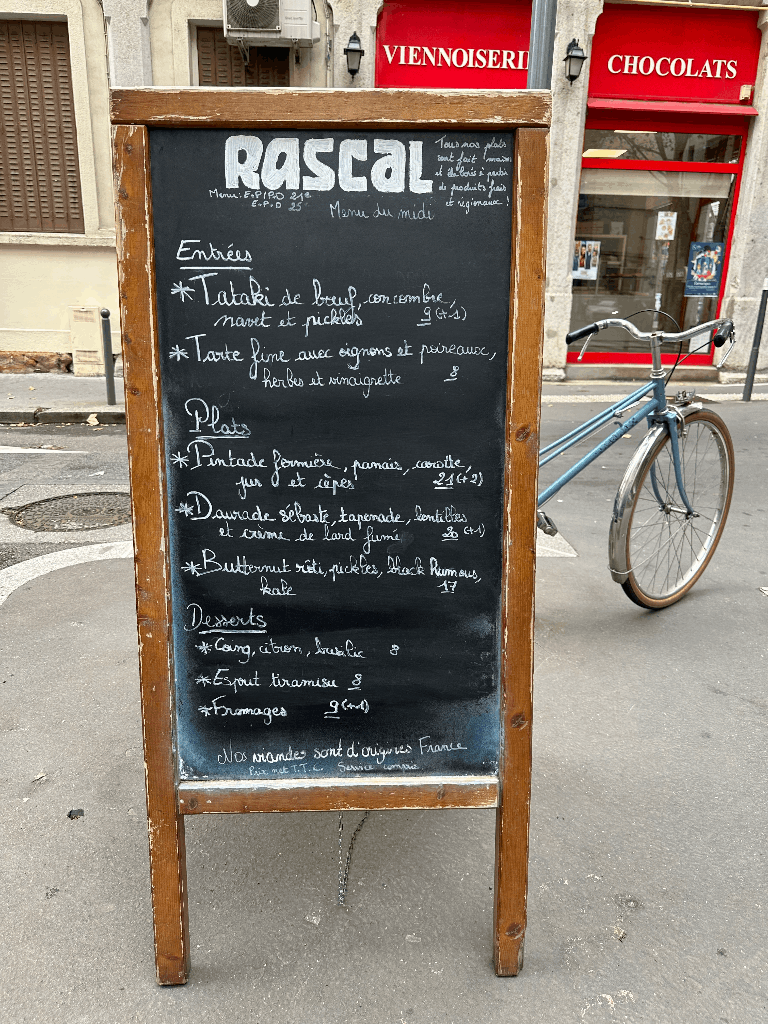 VIENNOISERI
CHOCOLATS
RASCAL
Tous nos plats
sont fait maison
et élaborés à partir
de produits frais
et régionaux !
Menu: E.P/P.D 21€
E.P.D 25€
Menu du midi
Entrées
* Tataki de bœuf, concombre,
navet et pickles 9 (+1)
* Tarte fine avec oignons et poireaux,
herbes et vinaigrette 8
Plats
* Pintade fermière, panais, carotte,
jus et cèpes 21 (+2)
* Daurade sébaste, tapenade, lentilles
et crème de lard fumé 20 (+1)
* Butternut rôti, pickles, black humous,
kale 17
Desserts
* Coing, citron, basilic 8
* Esprit tiramisu 8
* Fromages 9 (+1)
Nos viandes sont d'origines France
Prix net T.T.C Service compris